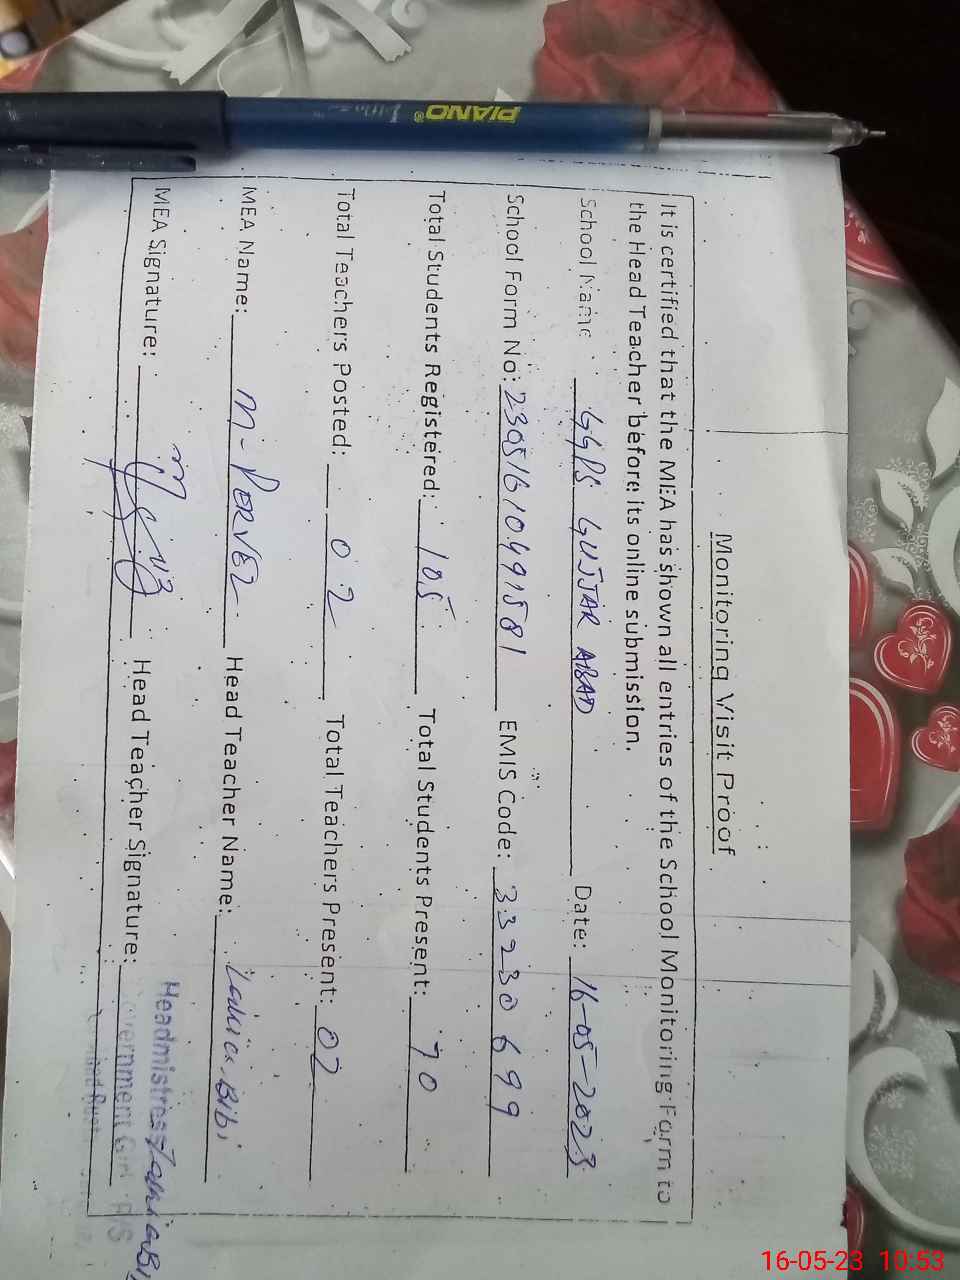 PIANO®
Monitoring Visit Proof
It is certified that the MEA has shown all entries of the School Monitoring Form to
the Head Teacher before its online submission.
School Name GGPS GUJJAR ABAD Date: 16-05-2023
School Form No: 23051610491581 EMIS Code: 33230699
Total Students Registered: 105 Total Students Present: 70
Total Teachers Posted: 02 Total Teachers Present: 02
MEA Name: M-PERVEZ Head Teacher Name: Bibi
MEA Signature: Head Teacher Signature:
Headmistress
16-05-23 10:53